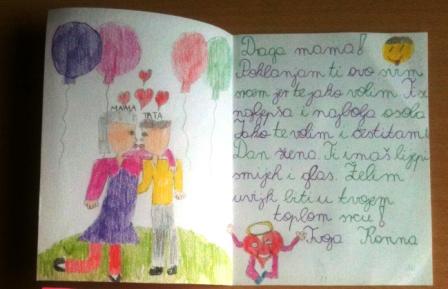 MAMA TATA
Draga mama!
Poklanjam ti ovo svim
srcem jer te jako volim. Ti si
najljepša i najbolja osoba.
Jako te volim i čestitam ti
Dan žena. Ti imaš lijepi
smijeh i glas. Želim
uvijk biti u tvojem
toplom srcu!
Tvoja Ronna